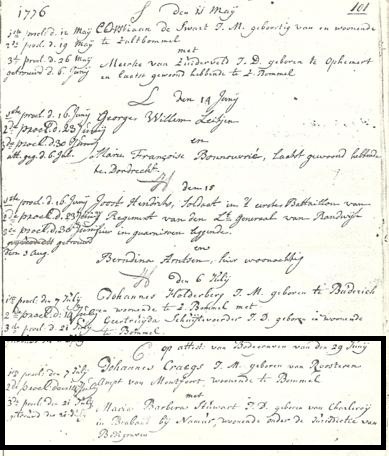 1776
den 11 Maij
101
1ste procl. d. 12 Maij
2de procl. d. 19 Maij
3de procl. d. 26 Maij
getrouwd d. 6 Junij
de Swart J. M. geboortig van en woonende
te Zaltbommel
met
Meerke van Linderveld J. D. geboren te Ophemert
en laatst gewoond hebbende te Z. Bommel
den 14 Junij
1ste procl. d. 16 Junij
2de procl. d. 23 Junij
3de procl. d. 30 Junij
att. geg. d. 6 Jul.
Georges Willem
en
Maria Françoise Bonnouvrié, laatst gewoond hebbende
te Dordrecht
den 15
1ste procl. d. 16 Junij
2de procl. d. 23 Junij
3de procl. d. 30 Junij
getrouwd
den 3 Aug.
Joost Hendriks, Soldaat in 't eerste Batthaillon van
't Regiment van den Lt. Generaal van Randwijk
hier in guarnisoen leggende
en
Berendina Arntsen, hier woonachtig
den 6 Julij
1ste procl. den 7 Julij
2de procl. d. 14 Julij
3de procl. d. 21 Julij
Johannes Holderberg J. M. geboren te Buderich
en wonende te Z. Bommel met
Geertruijda Schuijtvoerder J. D. geboren en wonende
te Bommel
op attest. van Bodegraven van den 29 Junij
1ste procl. den 7 Julij
2de procl. den 14 Julij
3de procl. den 21 Julij
getrouwd den 21 Julij
Johannes Craegs J. M. geboren van Roosteren
Ampt van Montfoort, woonende te Bommel
met
Maria Barbera Stuwart J. D. geboren van Charleroij
in Braband bij Namur, woonende onder de Jurisdictie van
Bodegraven